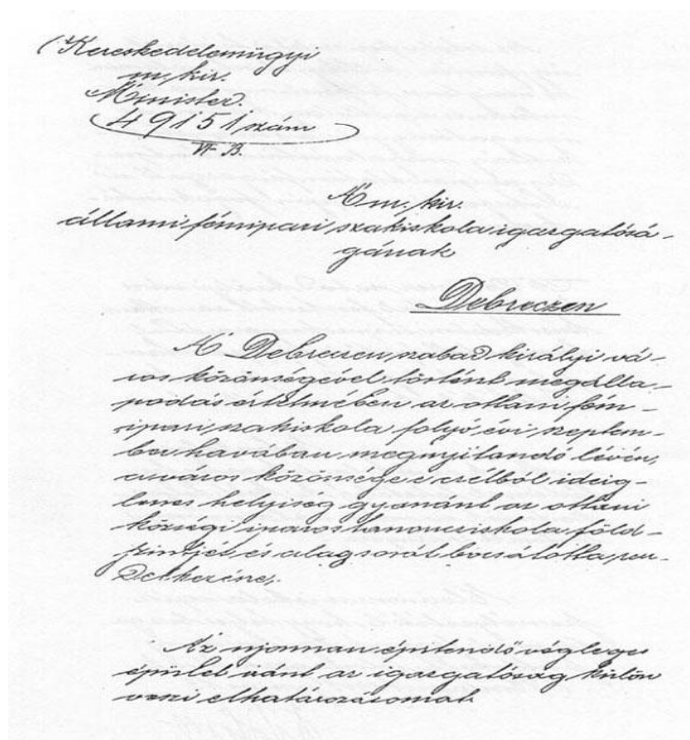 Kereskedelemügyi
m. kir.
Minister.
49151 szám
VI B.
A m. kir.
állami fémipari szakiskola igazgatósá-
gának
Debreczen
A Debreczen szabad királyi vá-
ros közönségével történt megálla-
podás értelmében az ottani fém-
ipari szakiskola folyó évi szeptem-
ber havában megnyitandó lévén,
a város közönsége e czélból ideig-
lenes helyiség gyanánt az ottani
községi iparostanoncziskola föld-
szintjét és alagsorát bocsátotta ren-
delkezésre.
Az ujonnan építendő végleges
épület iránt az igazgatóság külön
veszi elhatározásomat.